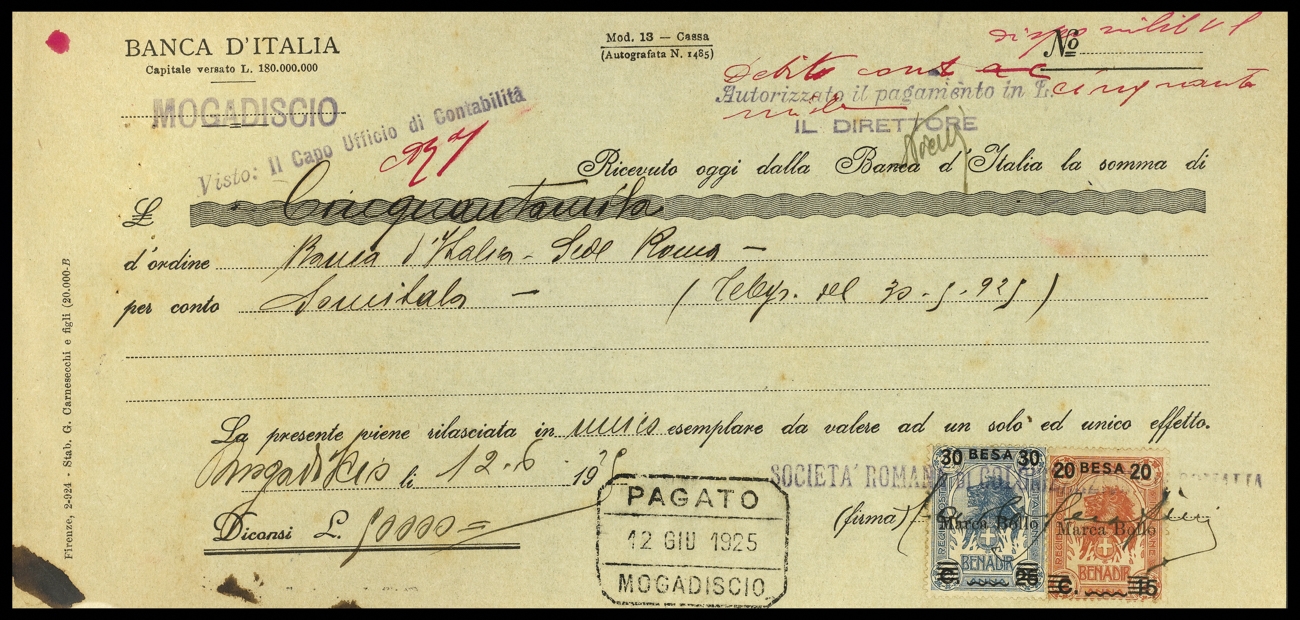 BANCA D'ITALIA
Capitale versato L. 180.000.000
MOGADISCIO
Mod. 13 — Cassa
(Autografata N. 1485)
No
Debito cont
Autorizzato il pagamento in L. cinquanta
mila
IL DIRETTORE
Visto: Il Capo Ufficio di Contabilità
Ricevuto oggi dalla Banca d'Italia la somma di
£ Cinquantamila
d'ordine Banca d'Italia - Sede Roma -
per conto Somitala - ( Telegr. del 30-5-925 )
La presente viene rilasciata in unico esemplare da valere ad un solo ed unico effetto.
Mogadiscio li 12-6-1925
SOCIETA' ROMANA DI COLONI
Diconsi L. 50000=
(firma)
PAGATO
12 GIU 1925
MOGADISCIO
30 BESA 30
Marca Bollo
BENADIR
C. 25
20 BESA 20
Marca Bollo
BENADIR
C. 15
Firenze, 2-924 - Stab. G. Carnesecchi e figli (20.000-B